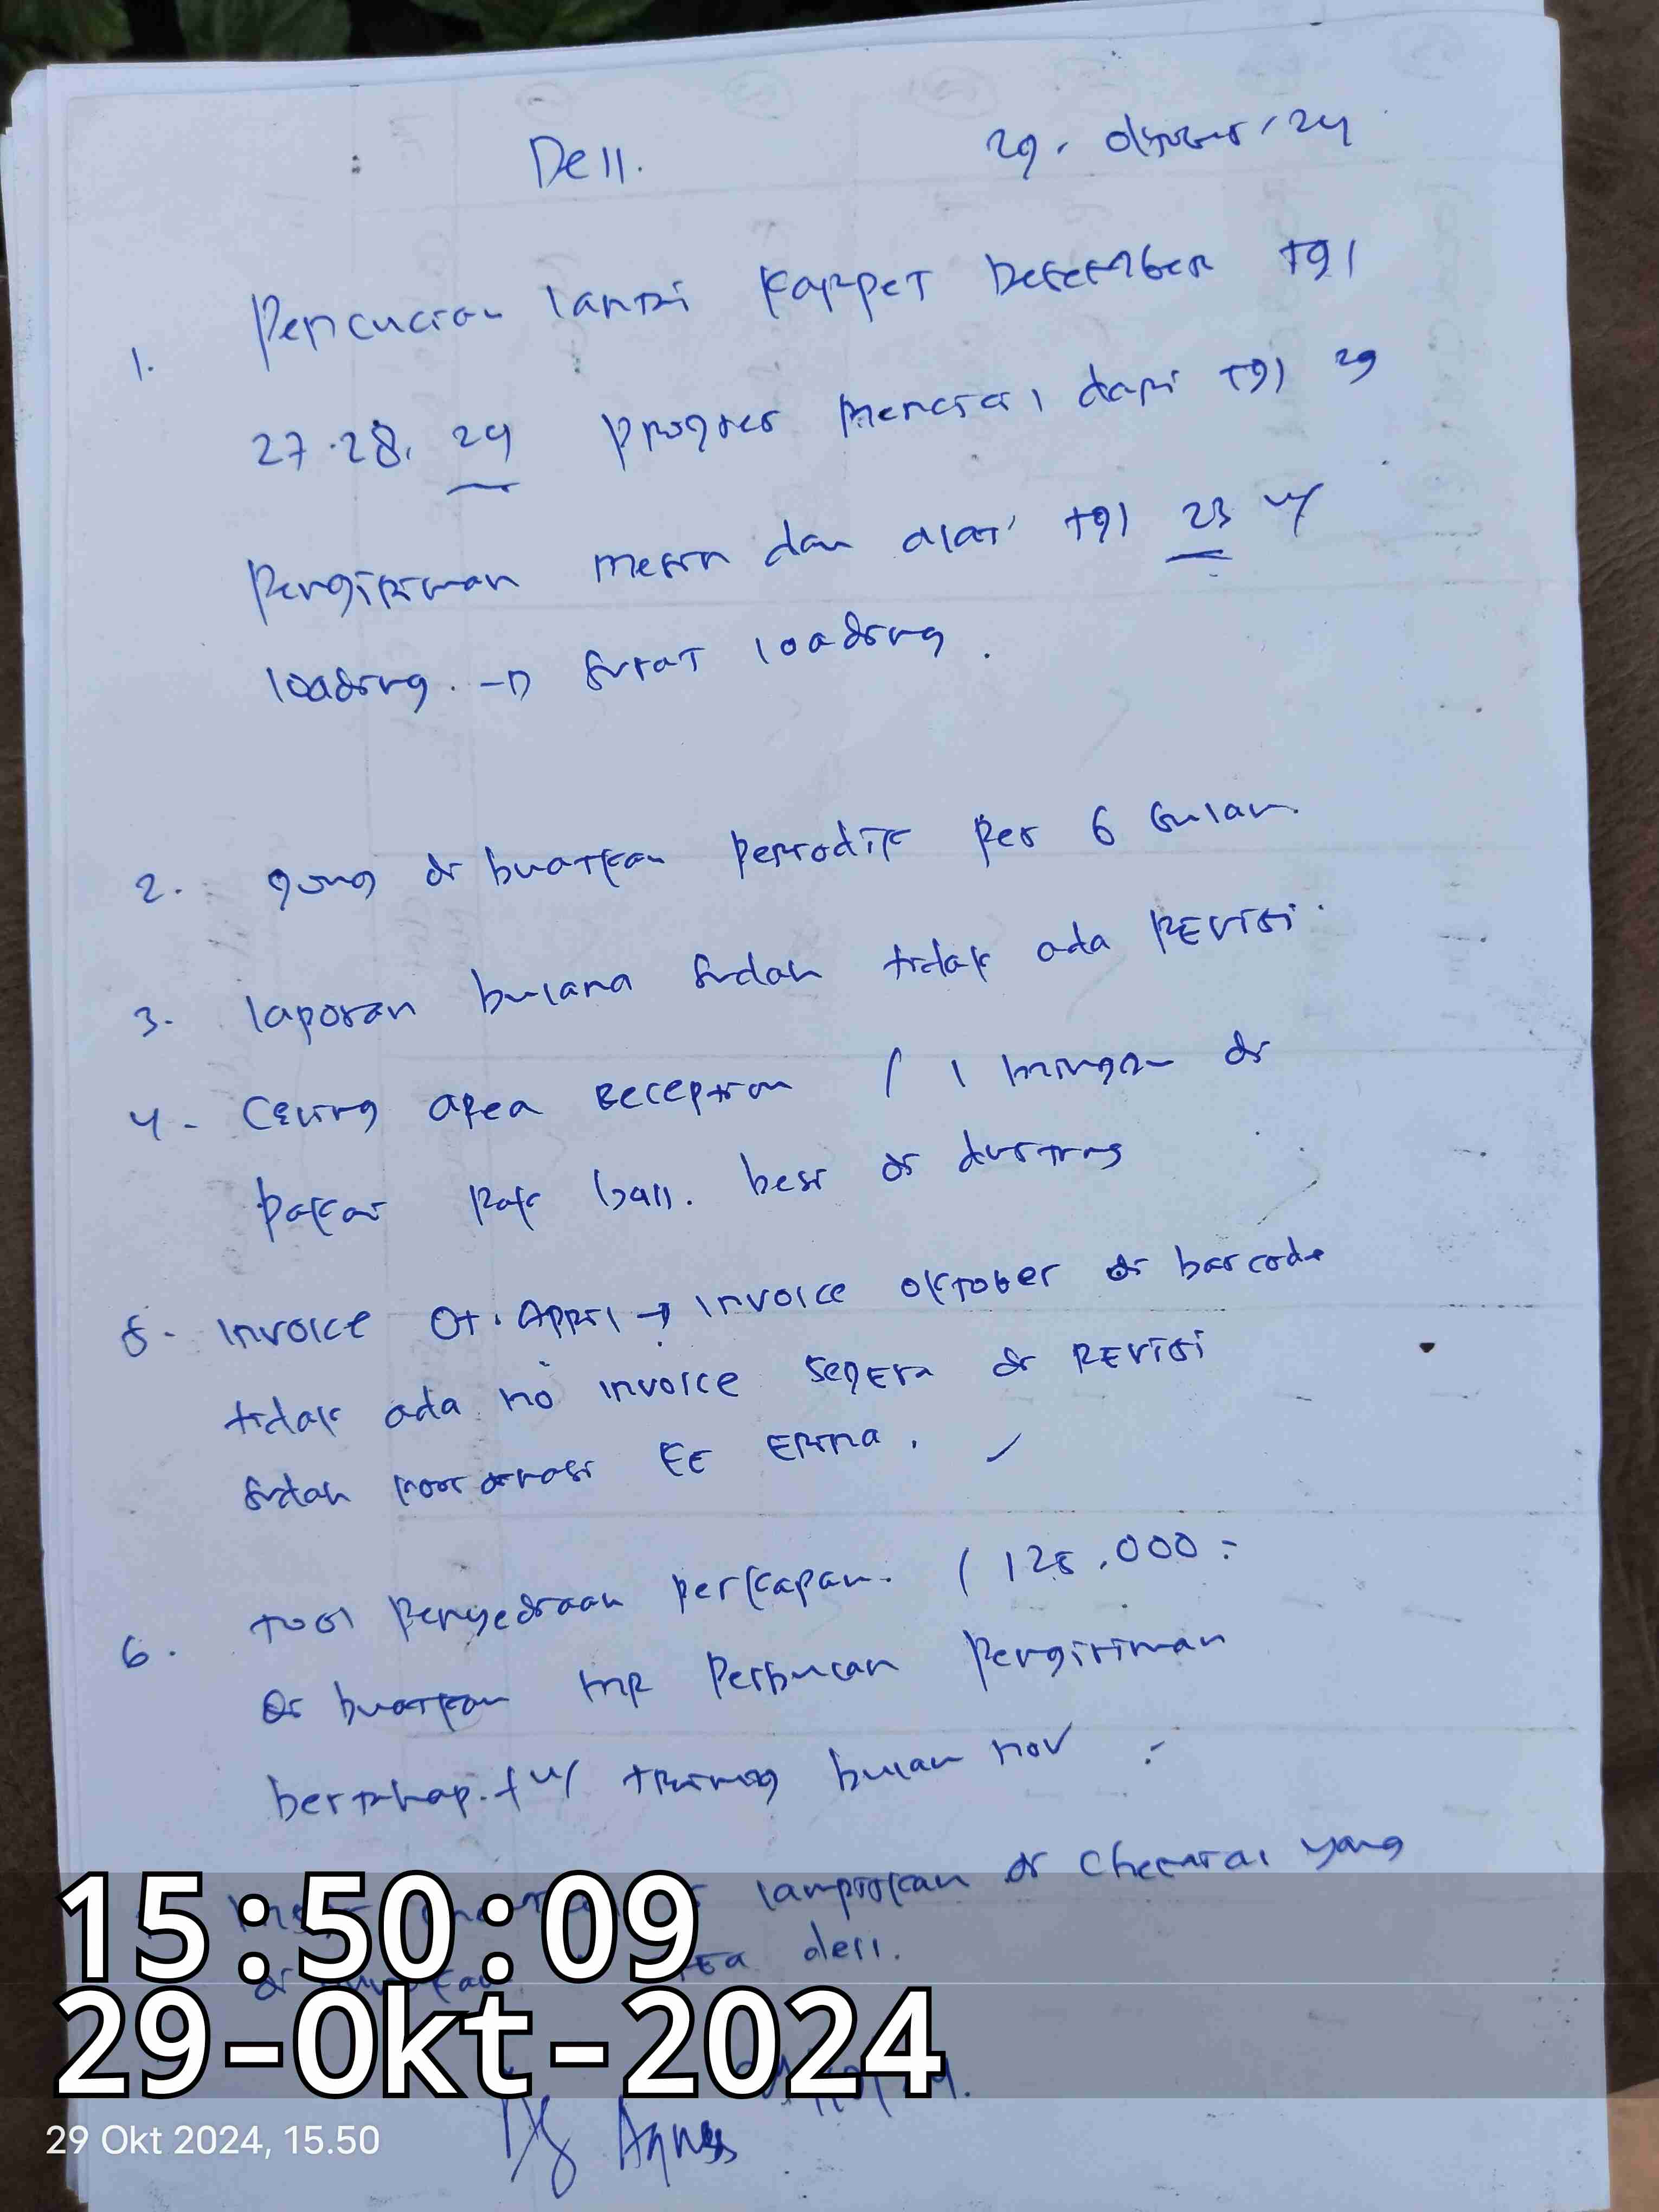 Dell. 29. Oktober / 24
1. Pencucian lantai karpet Desember tgl
27.28. 29 progres mencuci dari tgl 29
Pengiriman mesin dan alat tgl 23 u/
loading. → surat loading.
2. di buatkan Periodik Per 6 bulan.
3. laporan bulana sudah tidak ada REVISI.
4. Ceiling area Reception / 1 minggu di
Pakai Rak ball. besi di dusting
5. Invoice Ot. April → Invoice oktober di barcode
tidak ada no invoice segera di REVISI
sudah koordinasi KE ERINA.
6. tool Penyediaan perkapan. / 125.000 :
di buatkan MR Perbulan Pengiriman
bertahap. u/ bulan nov :-
lampirkan di Chemical yang
dell.
15:50:09
29-Okt-2024
29 Okt 2024, 15.50
Agnes